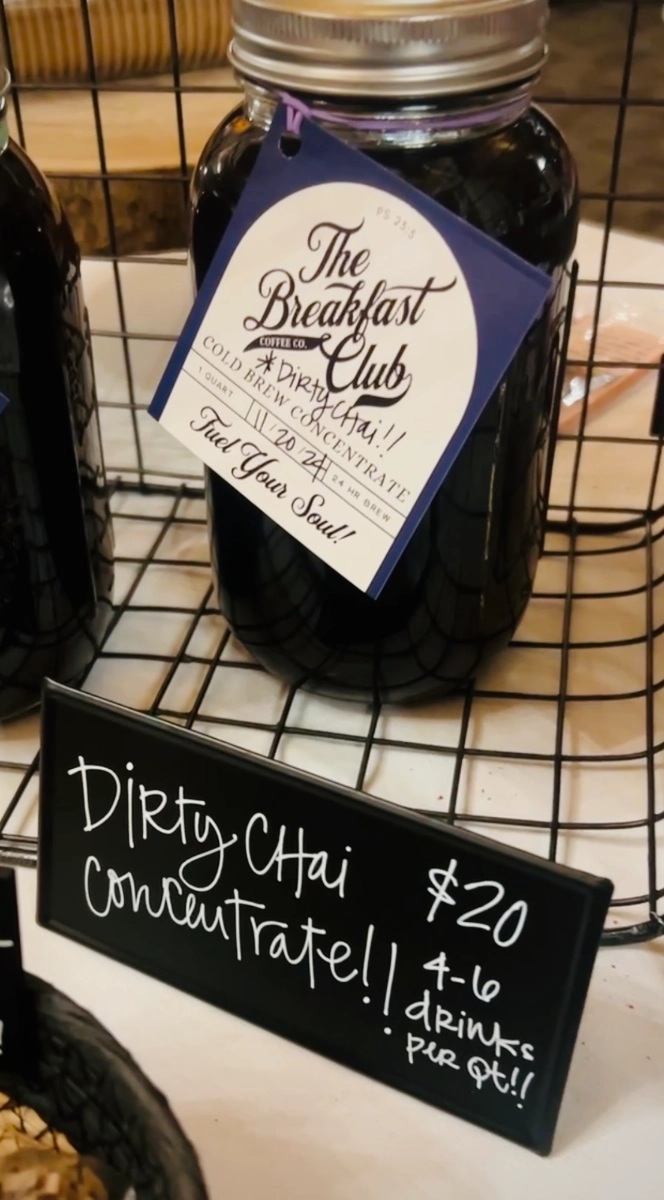 PS 23:5
The
Breakfast
COFFEE CO.
Club
*Dirty Chai!!
COLD BREW CONCENTRATE
1 QUART
11/20/24
24 HR BREW
Fuel Your Soul!
Dirty CHai
concentrate!!
$20
4-6
drinks
per Qt!!